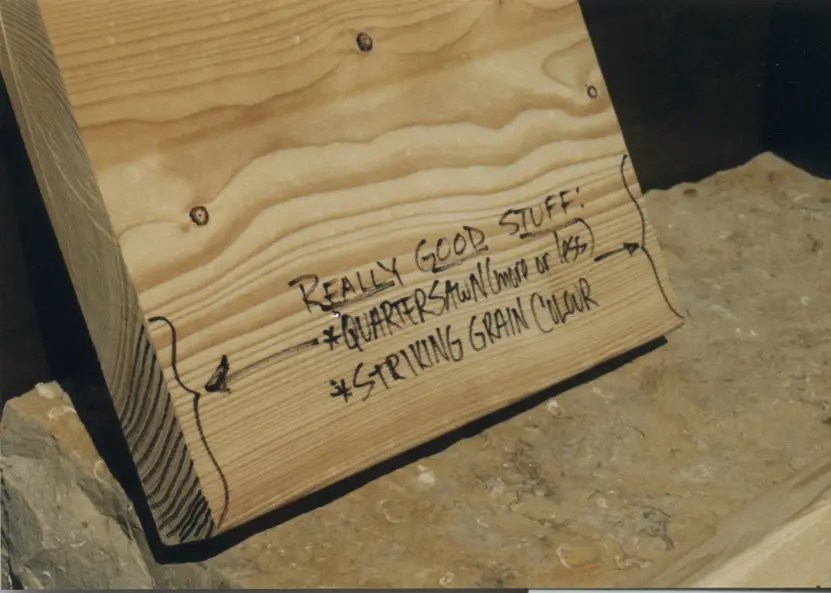 REALLY GOOD STUFF:
*QUARTERSAWN (more or less)
*STRIKING GRAIN COLOUR